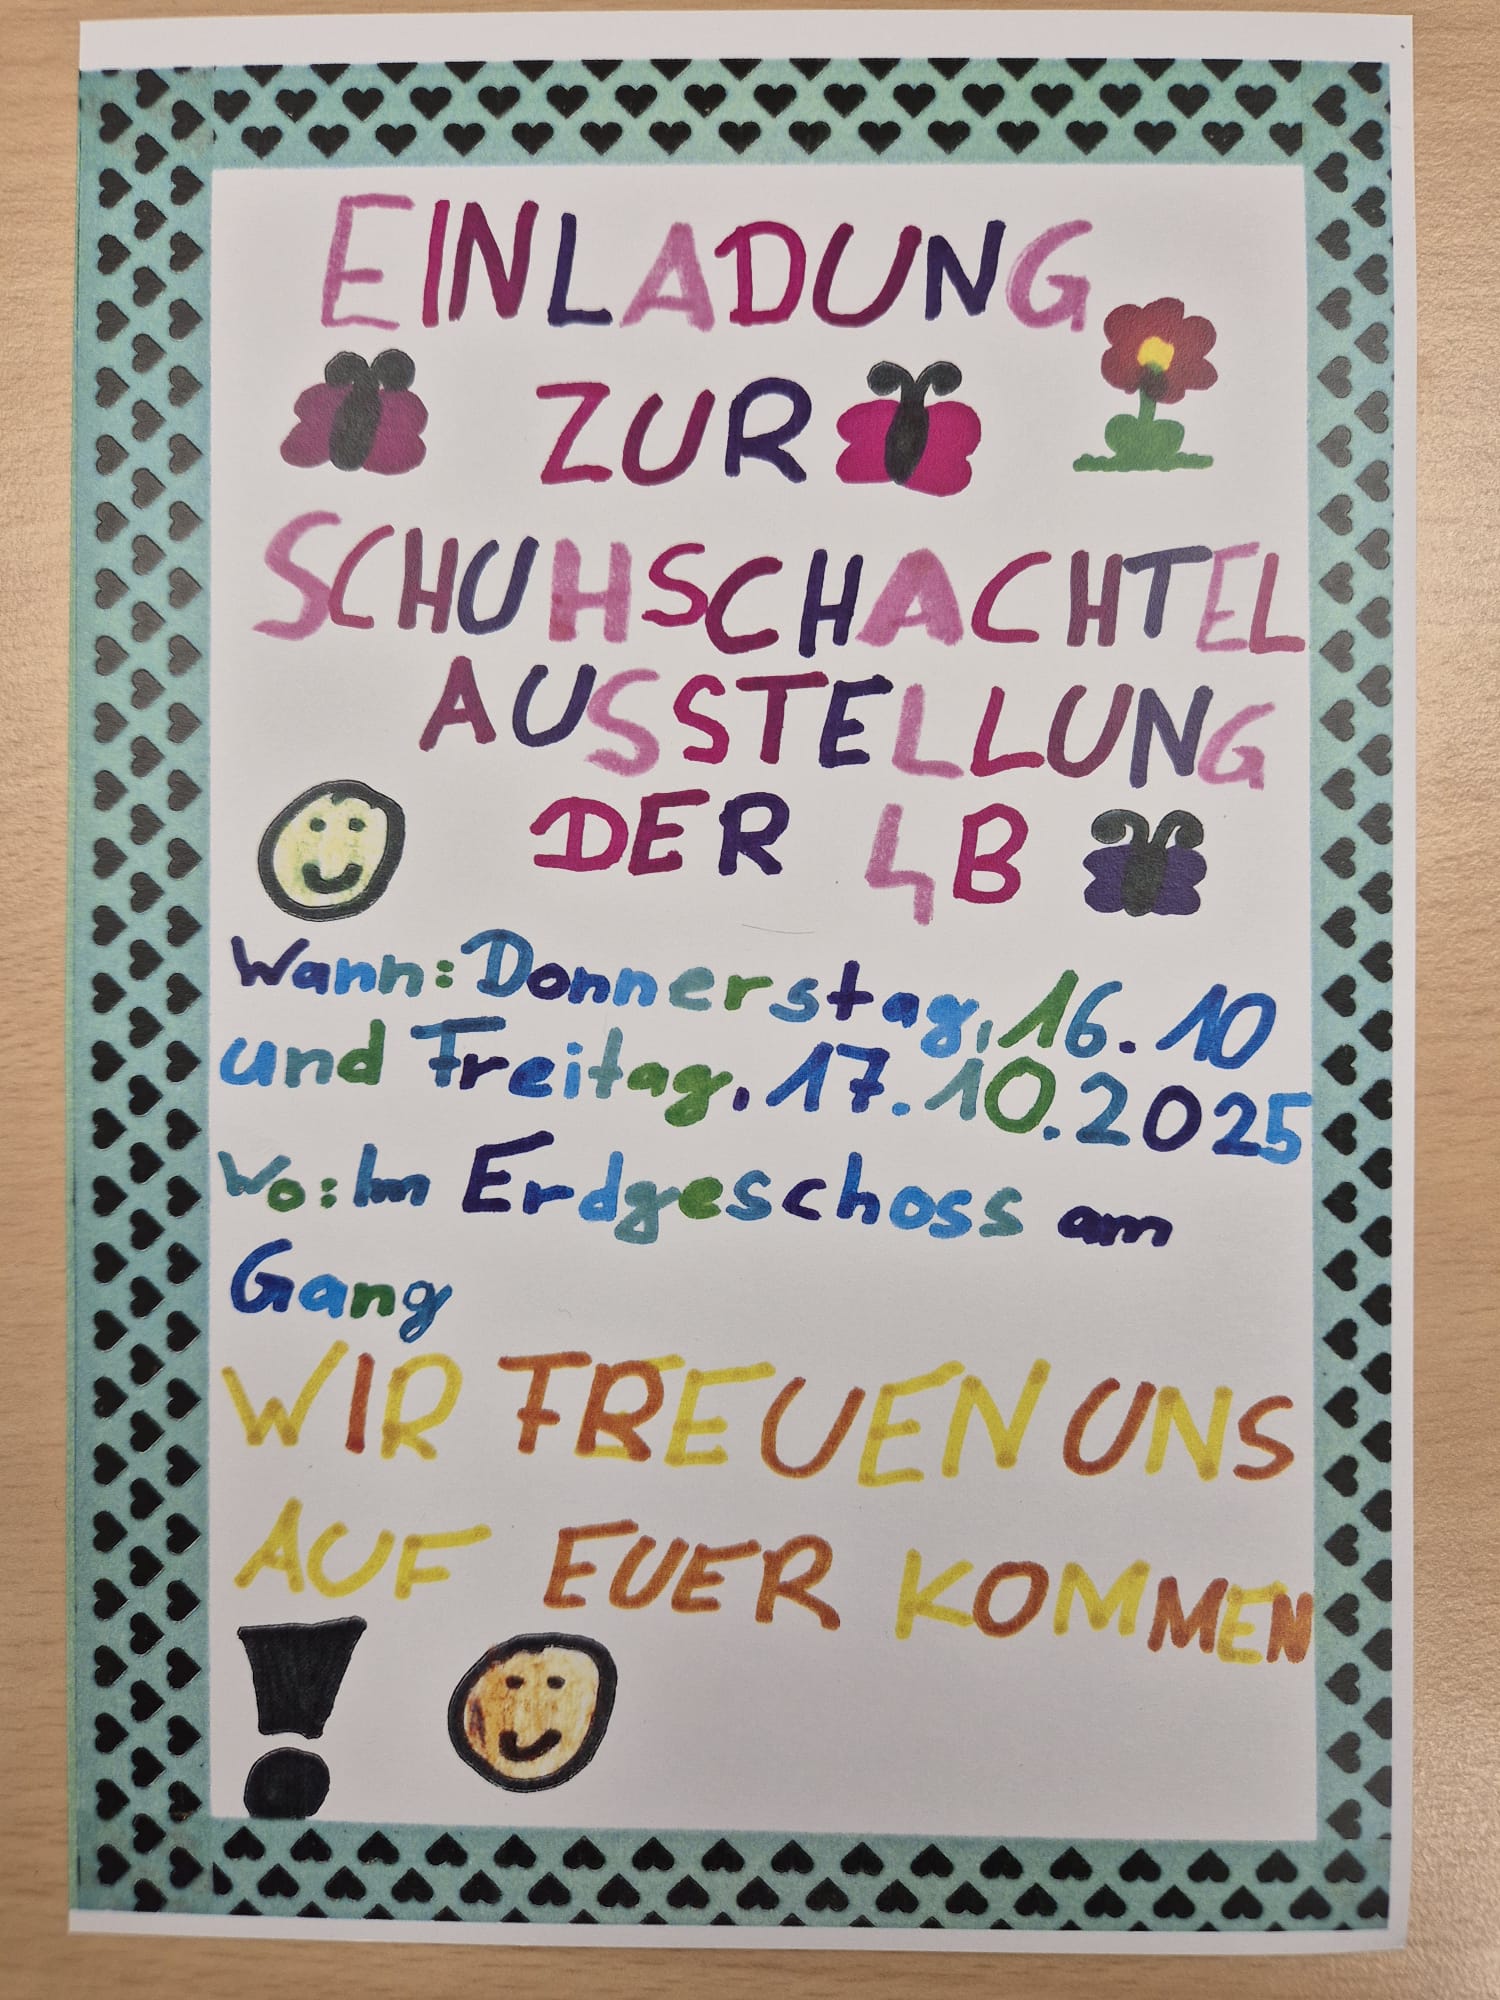 EINLADUNG
ZUR
SCHUHSCHACHTEL
AUSSTELLUNG
DER 4B
Wann: Donnerstag, 16.10
und Freitag, 17.10.2025
Wo: Im Erdgeschoss am
Gang
WIR FREUEN UNS
AUF EUER KOMMEN
!